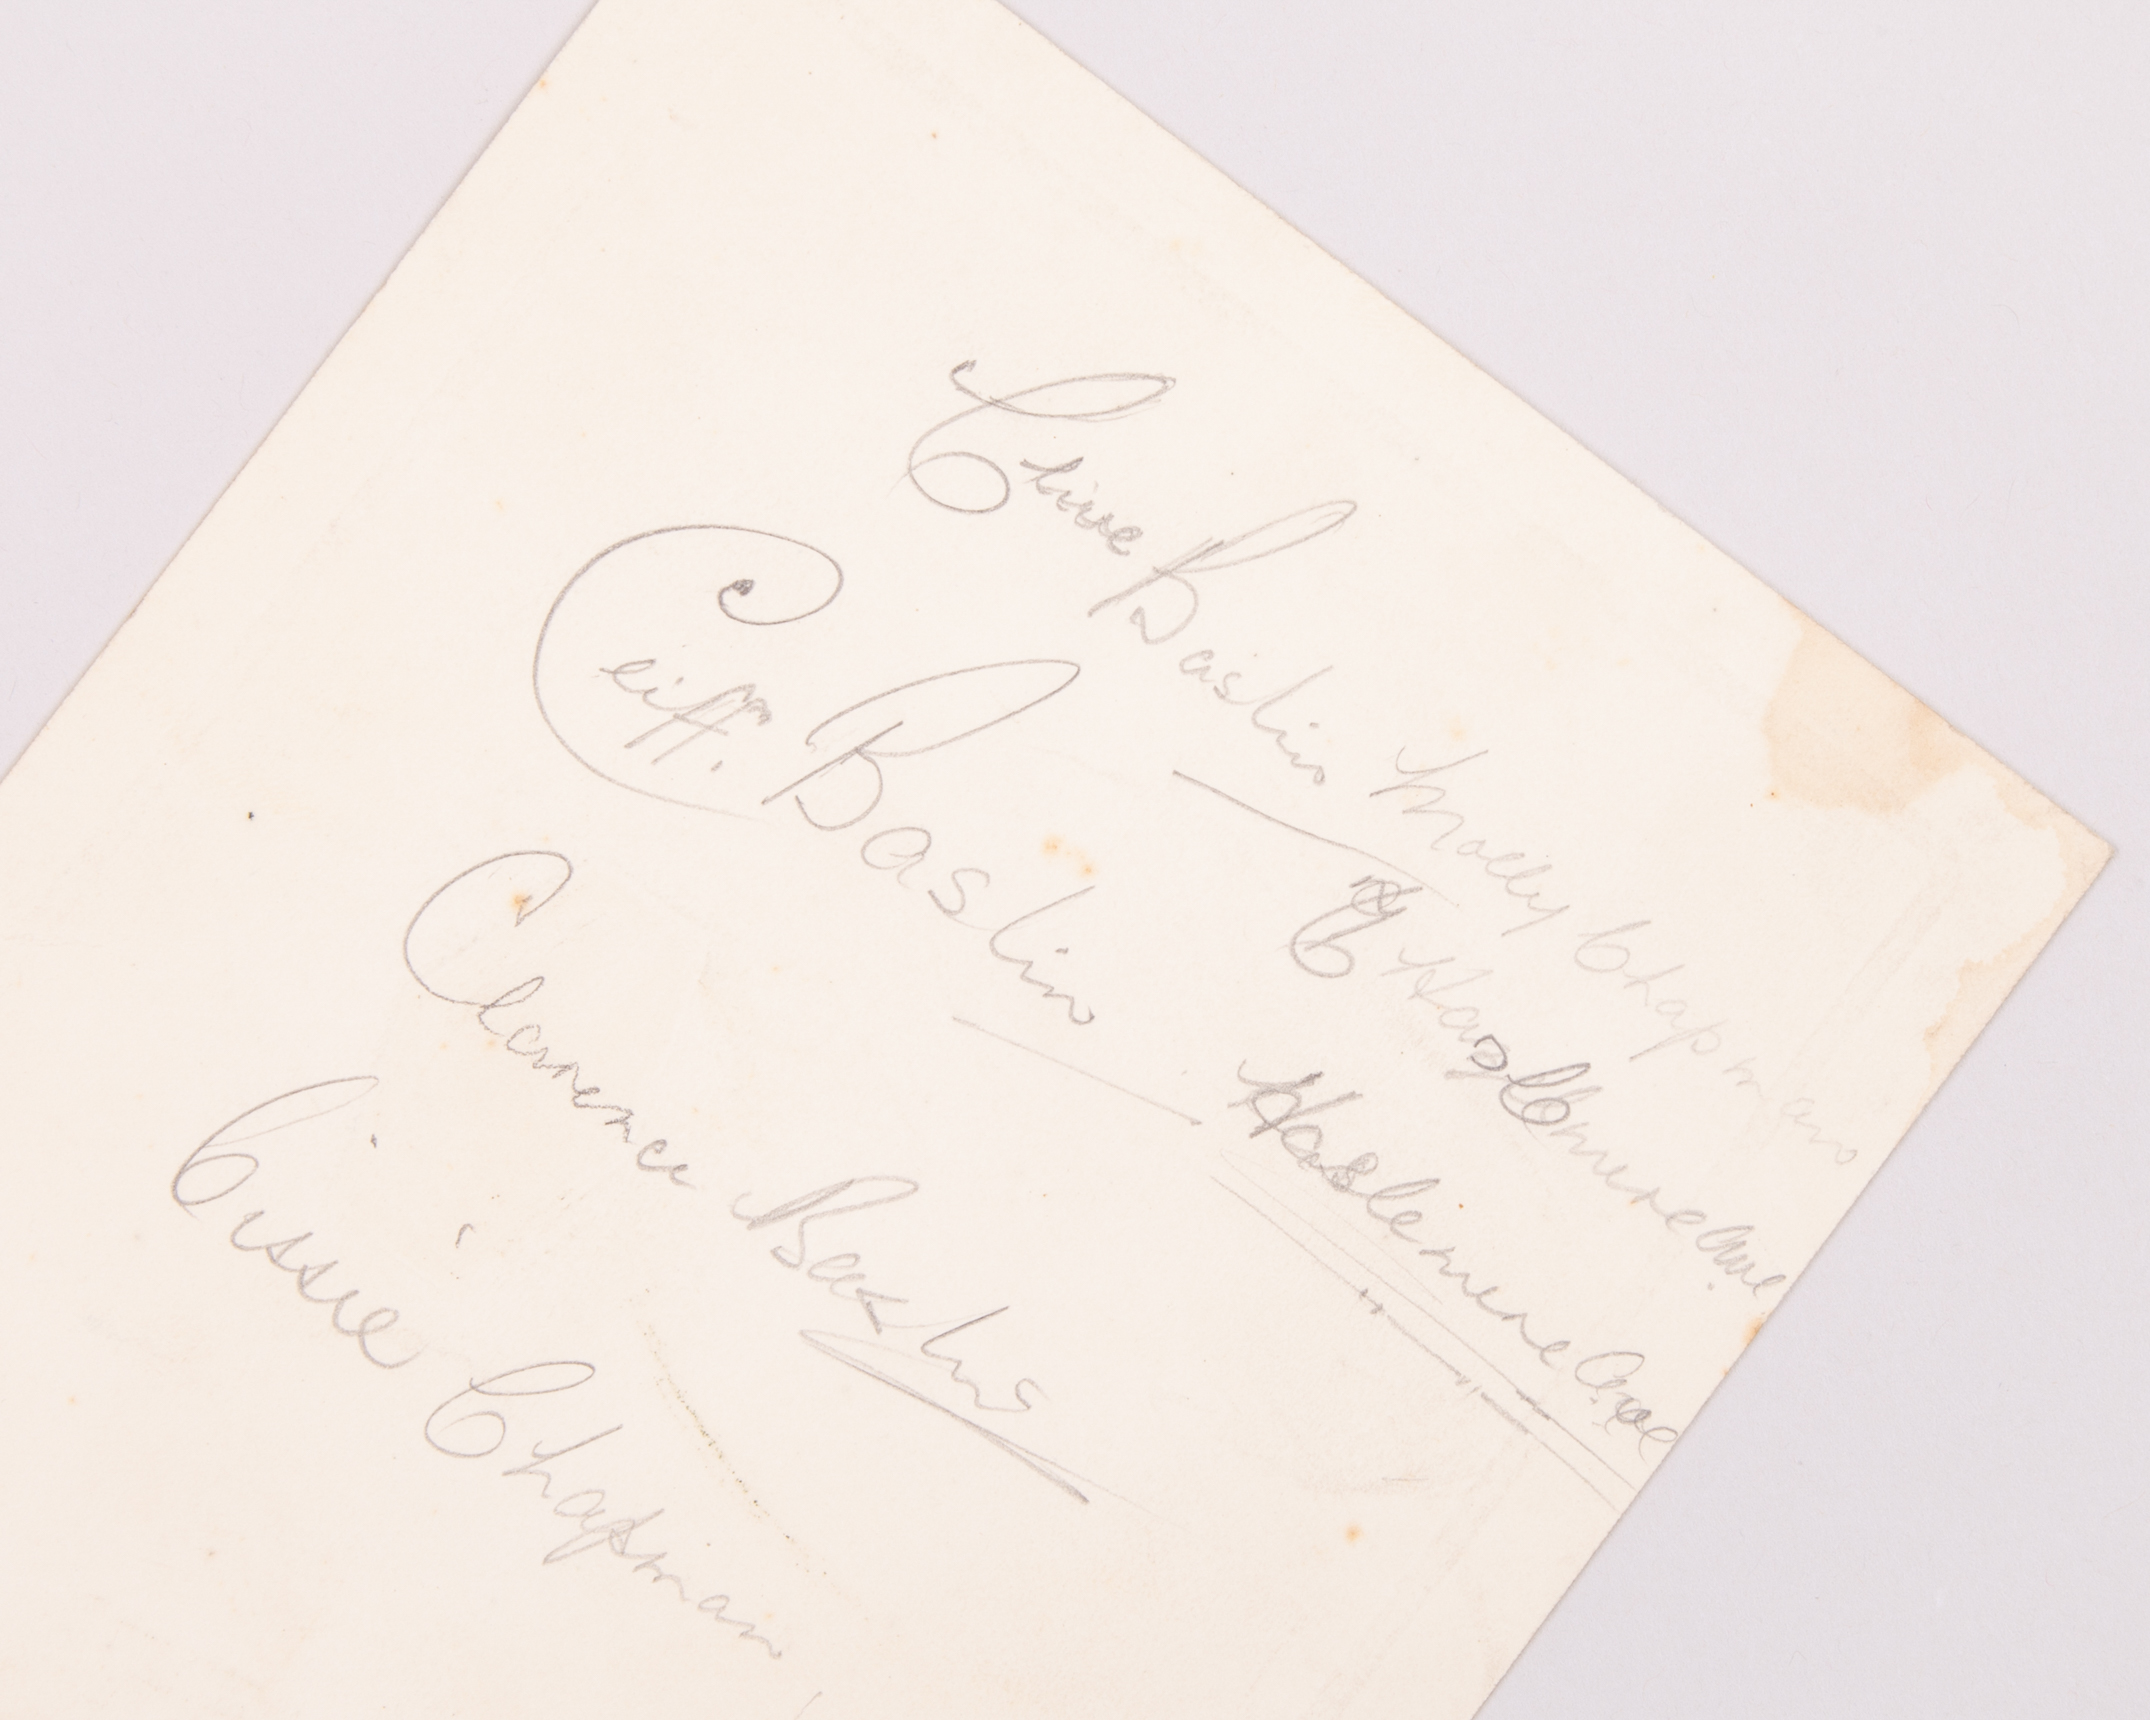 Clive Baslin Molly Chapman
Cliff. Baslin Haslemere Ave.
Clarence Baslin Haslemere Ave
Cissie Chapman